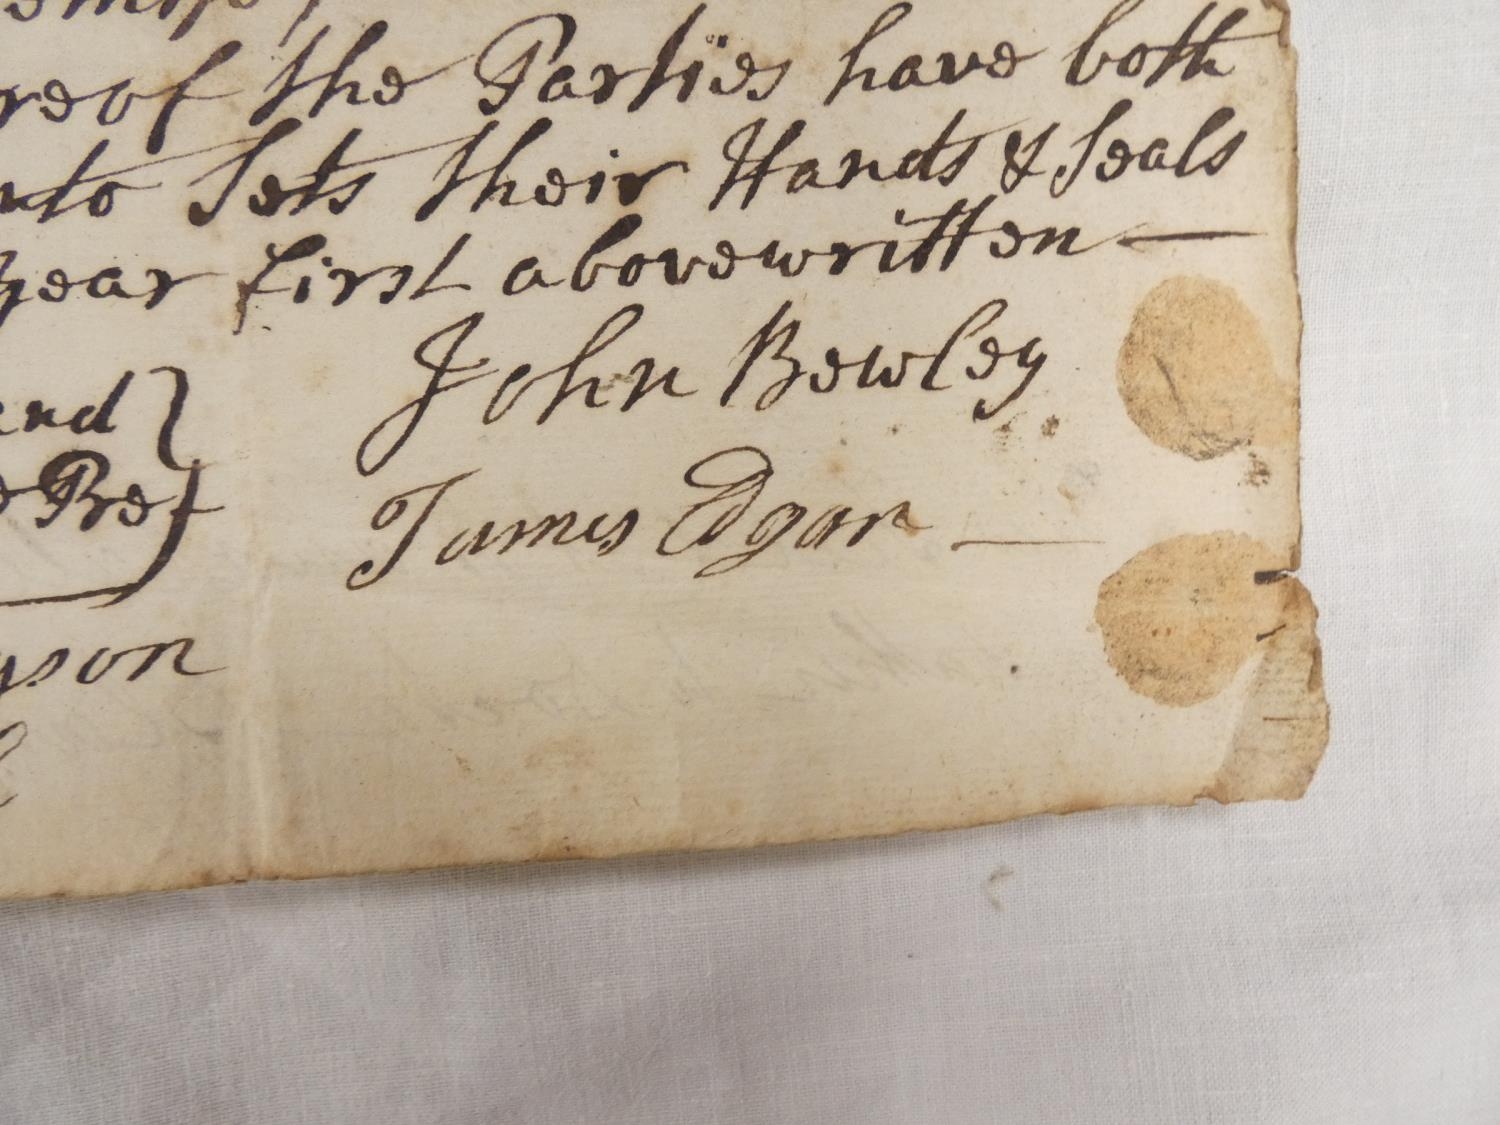 reof the Parties have both
nto Sets their Hands & Seals
year first abovewritten —
John Bewley
and
James Edgar —
Pre
son